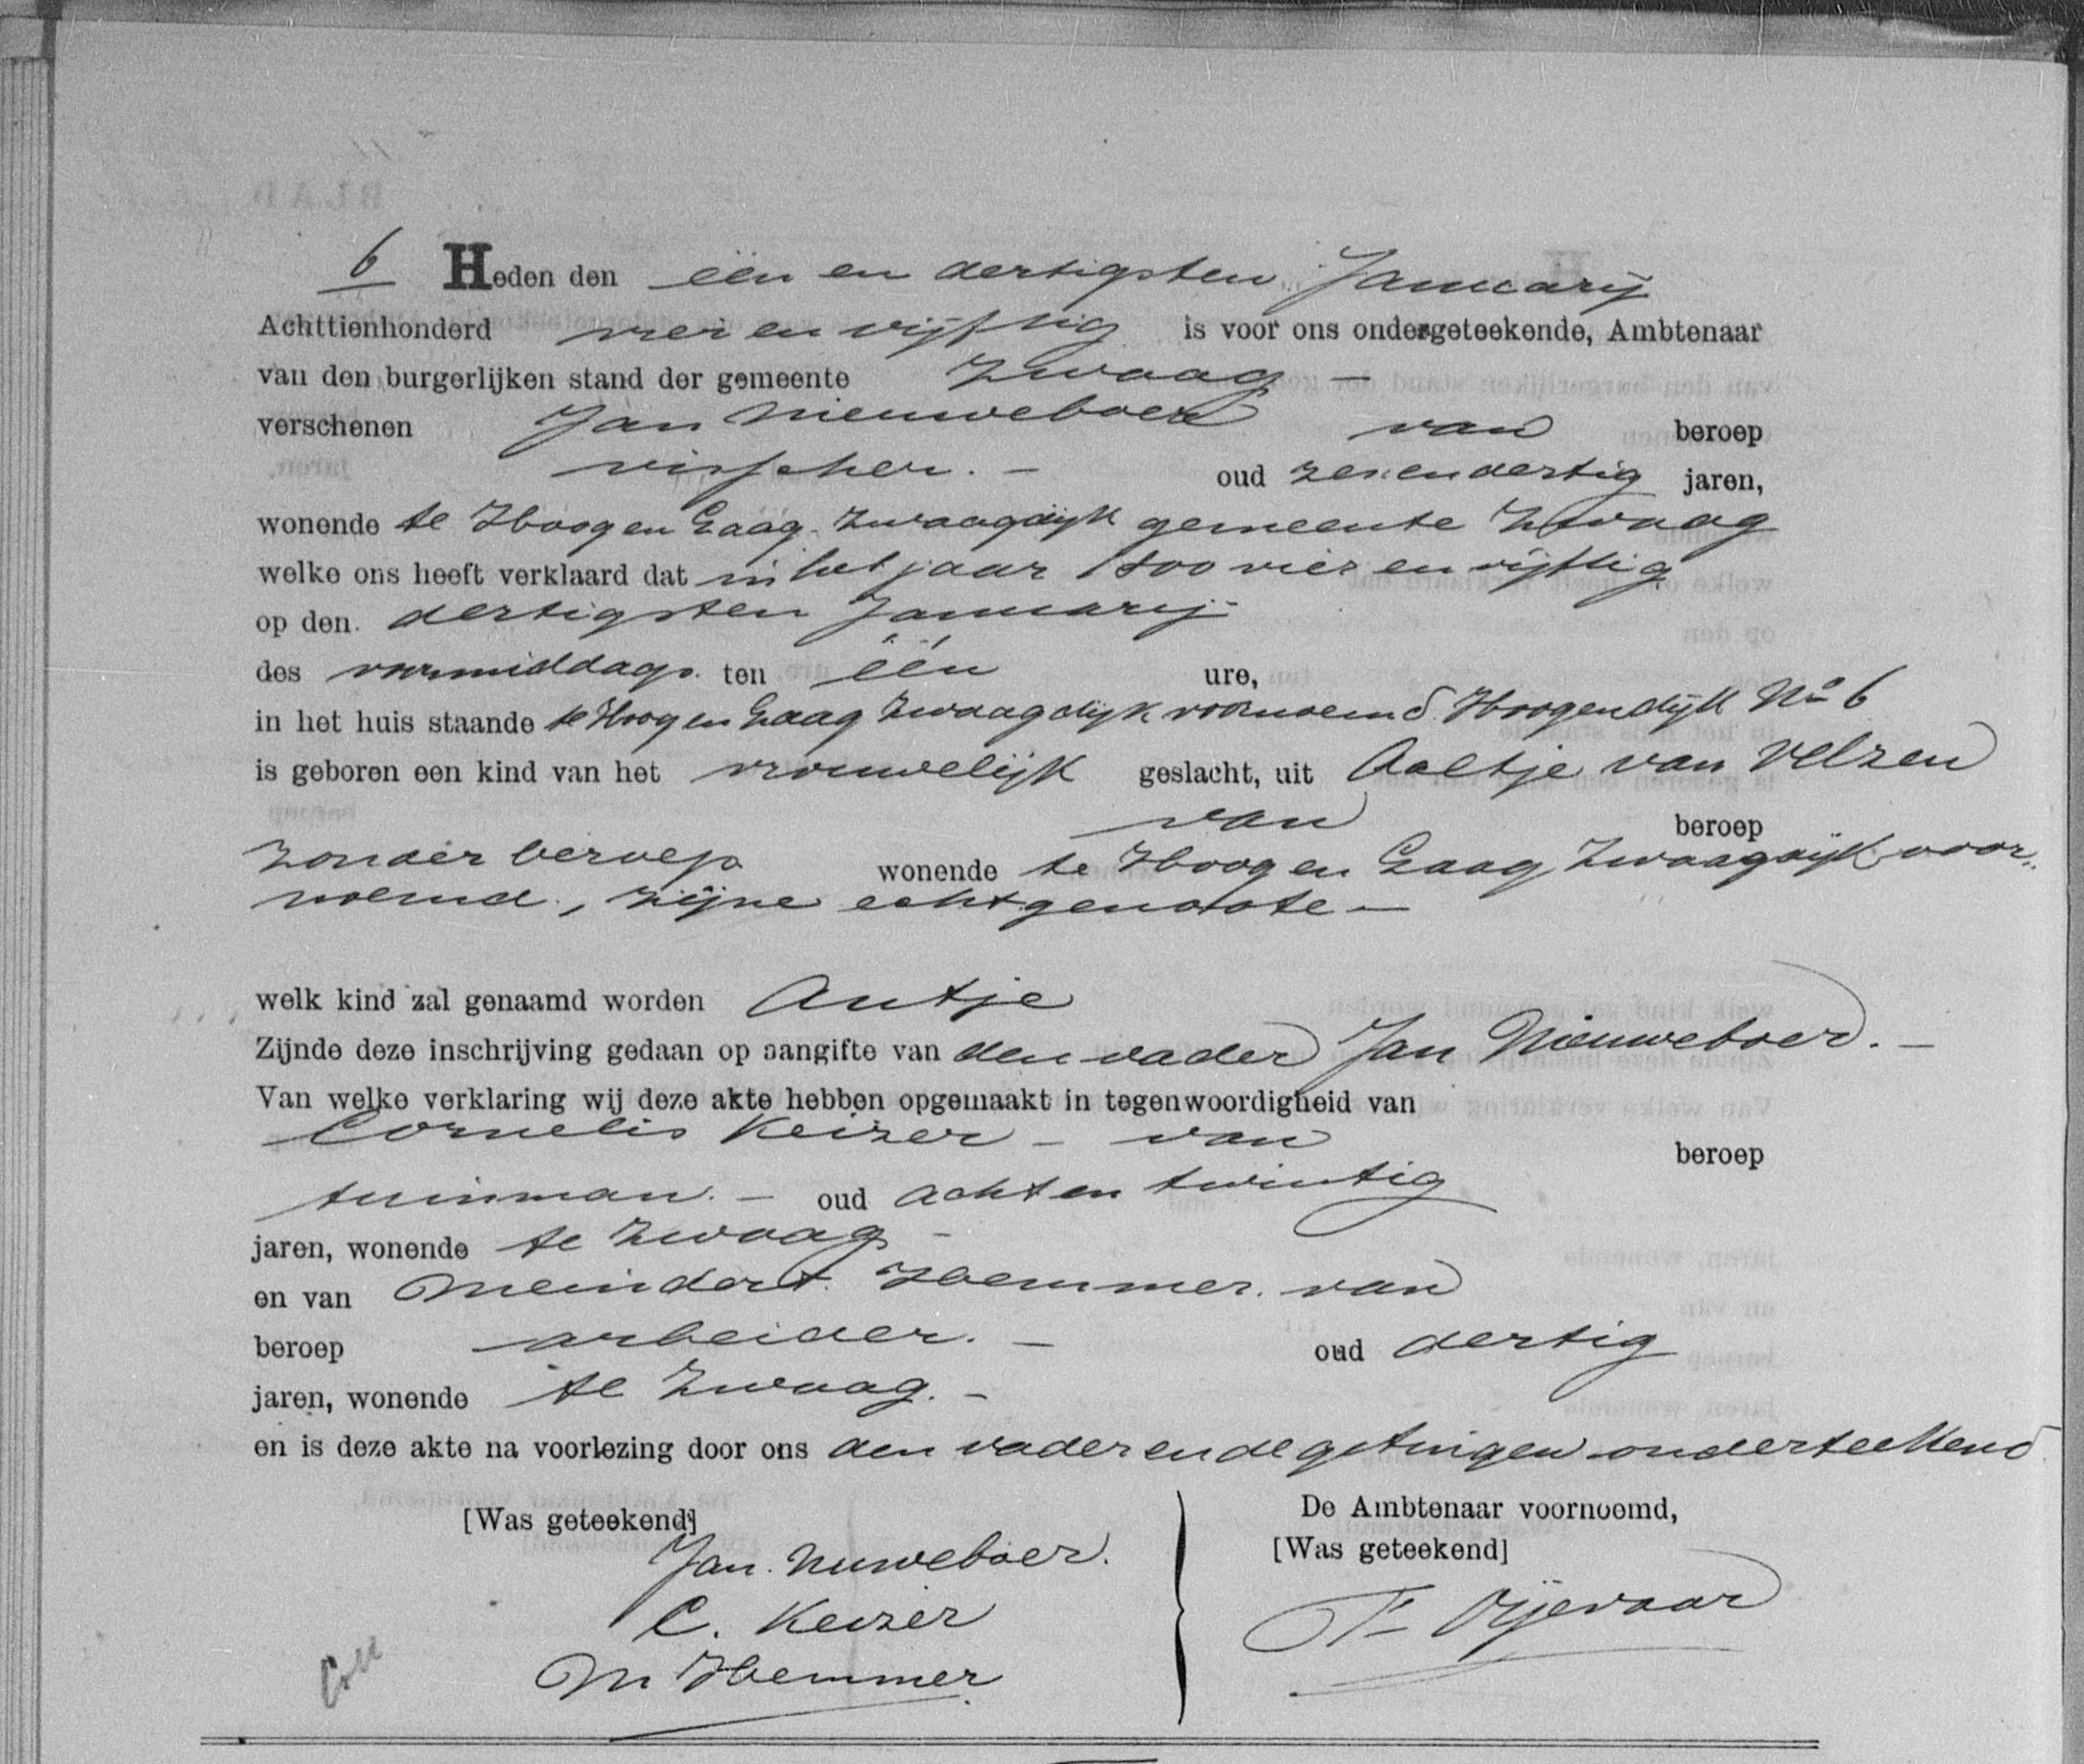 6 Heden den één en dertigsten Januarij
Achttienhonderd vier en vijftig is voor ons ondergeteekende, Ambtenaar
van den burgerlijken stand der gemeente Zwaag —
verschenen Jan Nieuweboer van beroep
visscher. — oud zesendertig jaren,
wonende te Hoog en Laag Zwaagdijk gemeente Zwaag
welke ons heeft verklaard dat in het jaar 1800 vier en vijftig
op den dertigsten Januarij
des voormiddags ten één ure,
in het huis staande te Hoog en Laag Zwaagdijk voornoemd Hoogendijk No 6
is geboren een kind van het vrouwelijk geslacht, uit Aaltje van Velzen
van beroep
zonder beroep wonende te Hoog en Laag Zwaagdijk voor-
noemd, zijne echtgenoote —
welk kind zal genaamd worden Antje
Zijnde deze inschrijving gedaan op aangifte van den vader Jan Nieuweboer. —
Van welke verklaring wij deze akte hebben opgemaakt in tegenwoordigheid van
Cornelis Keizer — van beroep
tuinman. — oud acht en twintig
jaren, wonende te Zwaag —
en van Meindert Hemmer. van
beroep arbeider. — oud dertig
jaren, wonende te Zwaag. —
en is deze akte na voorlezing door ons den vader en de getuigen onderteekend
[Was geteekend] De Ambtenaar voornoemd,
Jan Nuweboer. [Was geteekend]
C. Keizer
M Hemmer